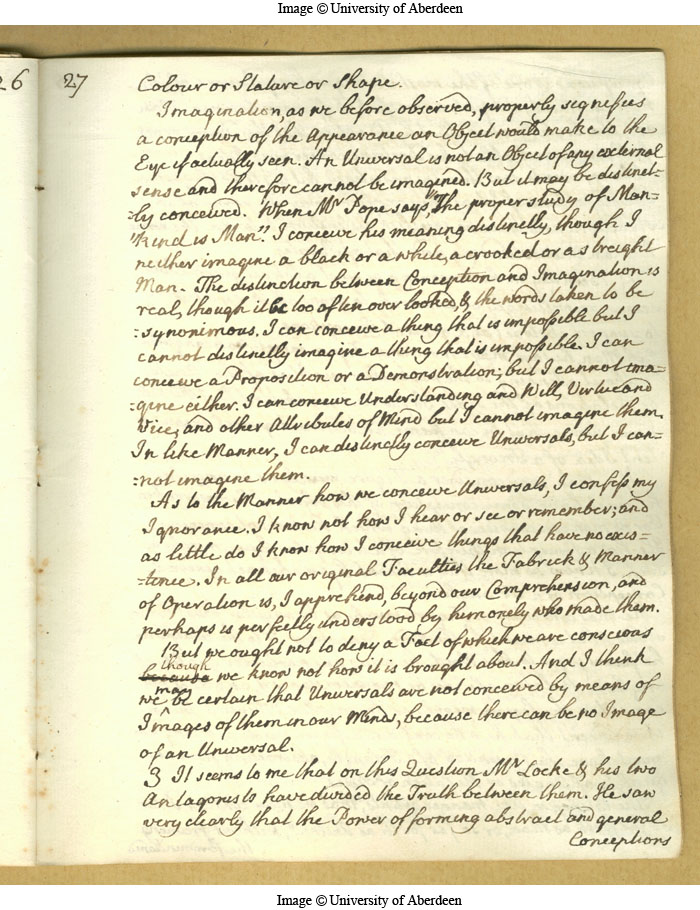 Image © University of Aberdeen
26
27
Colour or Stature or Shape.
Imagination, as we before observed, properly signifies
a conception of the Appearance an Object would make to the
Eye if actually seen. An Universal is not an Object of any external
sense and therefore cannot be imagined. But it may be distinct=
=ly conceived. When Mr Pope says, "The proper study of Man=
"kind is Man". I conceive his meaning distinctly, though I
neither imagine a black or a white, a crooked or a streight
Man. The distinction between Conception and Imagination is
real, though it be too often over looked, & the words taken to be
=synonimous. I can conceive a thing that is impossible but I
cannot distinctly imagine a thing that is impossible. I can
conceive a Proposition or a Demonstration; but I cannot ima=
=gine either. I can conceive Understanding and Will, Virtue and
Vice, and other Attributes of Mind but I cannot imagine them.
In like Manner, I can distinctly conceive Universals, but I can=
=not imagine them.
As to the Manner how we conceive Universals, I confess my
Ignorance. I know not how I hear or see or remember; and
as little do I know how I conceive things that have no exis=
=tence. In all our original Faculties the Fabrick & Manner
of Operation is, I apprehend, beyond our Comprehension, and
perhaps is perfectly understood by him onely who made them.
But we ought not to deny a Fact of which we are conscious
though
because we know not how it is brought about. And I think
may
we be certain that Universals are not conceived by means of
Images of them in our Minds, because there can be no Image
of an Universal.
3 It seems to me that on this Question Mr Locke & his two
Antagonists have divided the Truth between them. He saw
very clearly that the Power of forming abstract and general
Conceptions
Image © University of Aberdeen